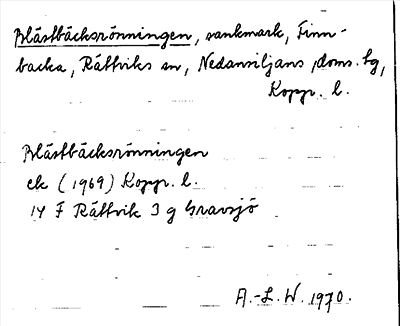 Blästbäcksrönningen, sankmark, Finn-
backa, Rättviks sn, Nedansiljans doms. tg,
Kopp. l.
Blästbäcksrönningen
ek (1969) Kopp. l.
14 F Rättvik 3 g Gravsjö
A.-L. W. 1970.